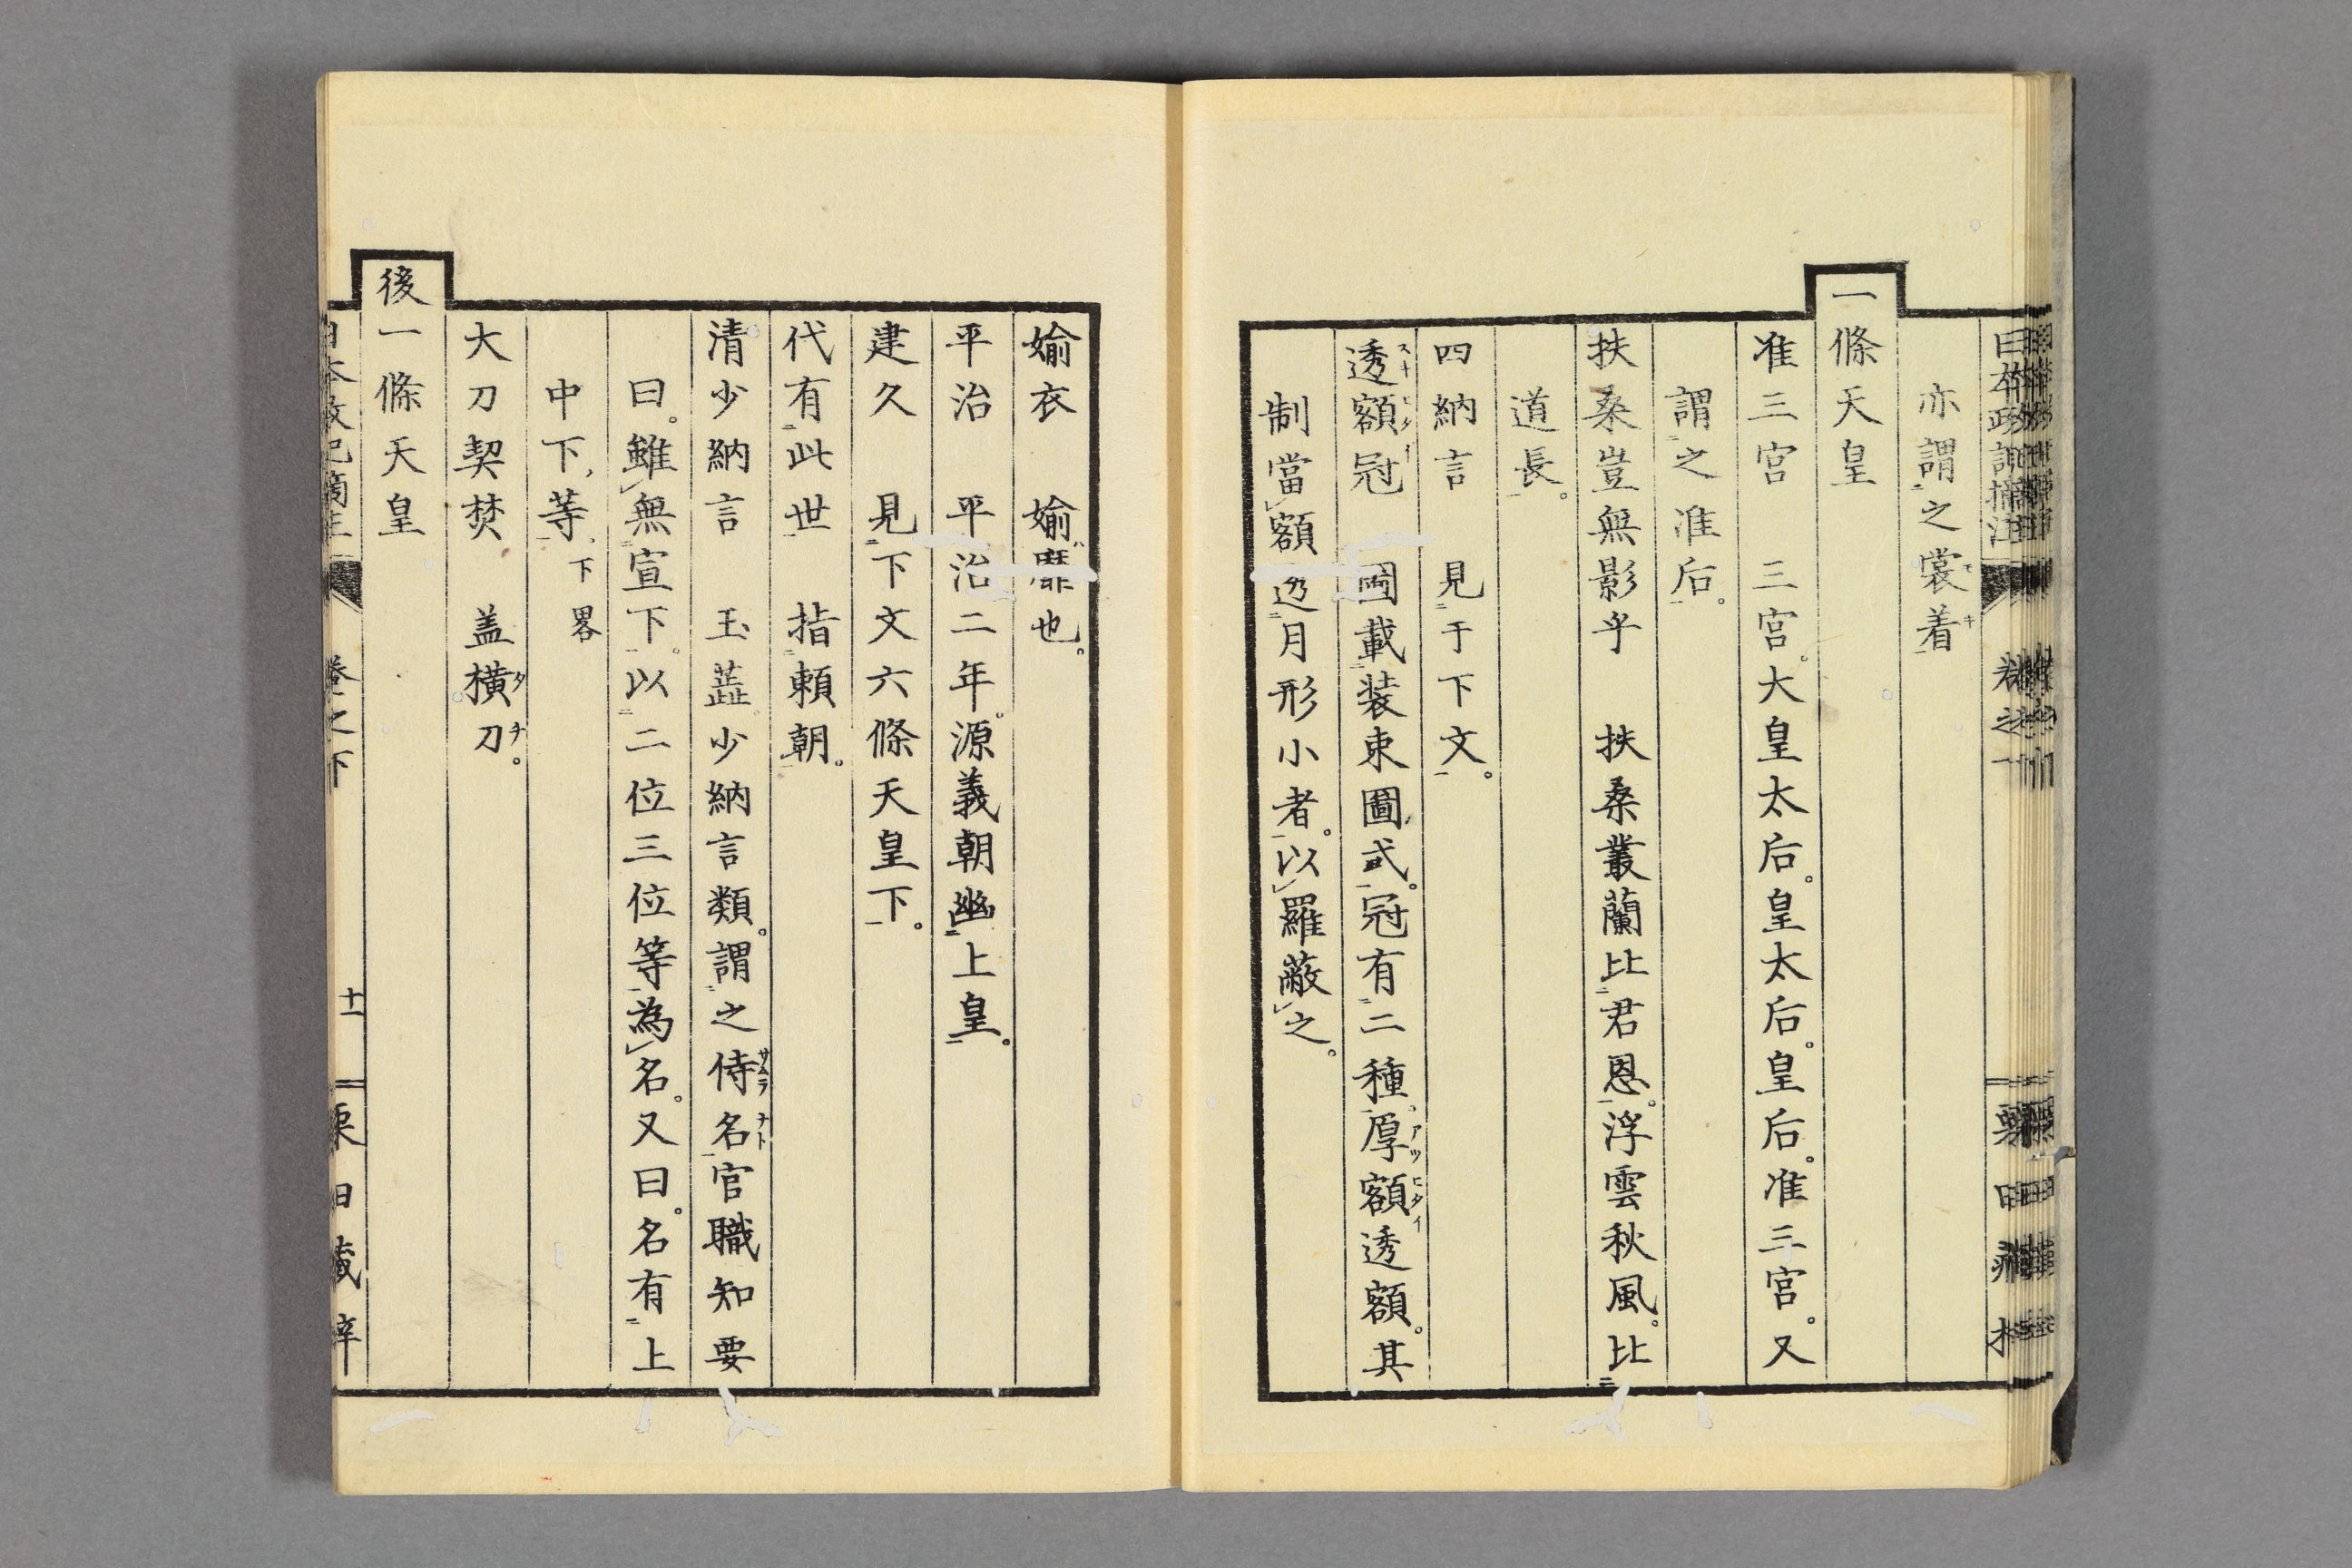 亦謂之裳着
一條天皇
准三宮　三宮。大皇太后。皇太后。皇后。准三宮。又
謂之准后。
扶桑豈無影乎　扶桑叢蘭比君恩。浮雲秋風。比
道長。
四納言　見于下文。
透額冠　圖載装束圖式。冠有二種。厚額透額。其
制當額透月形小者。以羅蔽之。
媮衣　媮靡也。
平治　平治二年。源義朝幽上皇。
建久　見下文六條天皇下。
代有此世　指頼朝。
清少納言　玉蘂。少納言類。謂之侍名官職知要
曰。雖無宣下。以二位三位等為名。又曰。名有上
中下等。下畧
大刀契焚　盖横刀。
後一條天皇
卷之下
十一